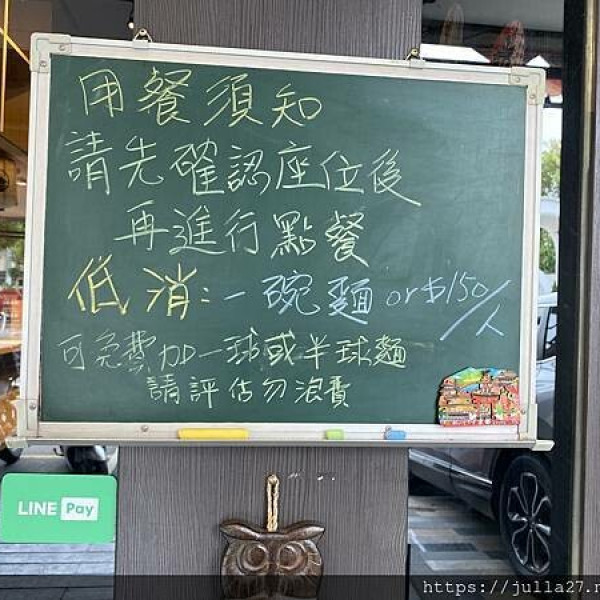 用餐須知
請先確認座位後
再進行點餐
低消：一碗麵 or $150/人
可免費加一球或半球麵
請評估勿浪費
LINE Pay
https://julla27.n